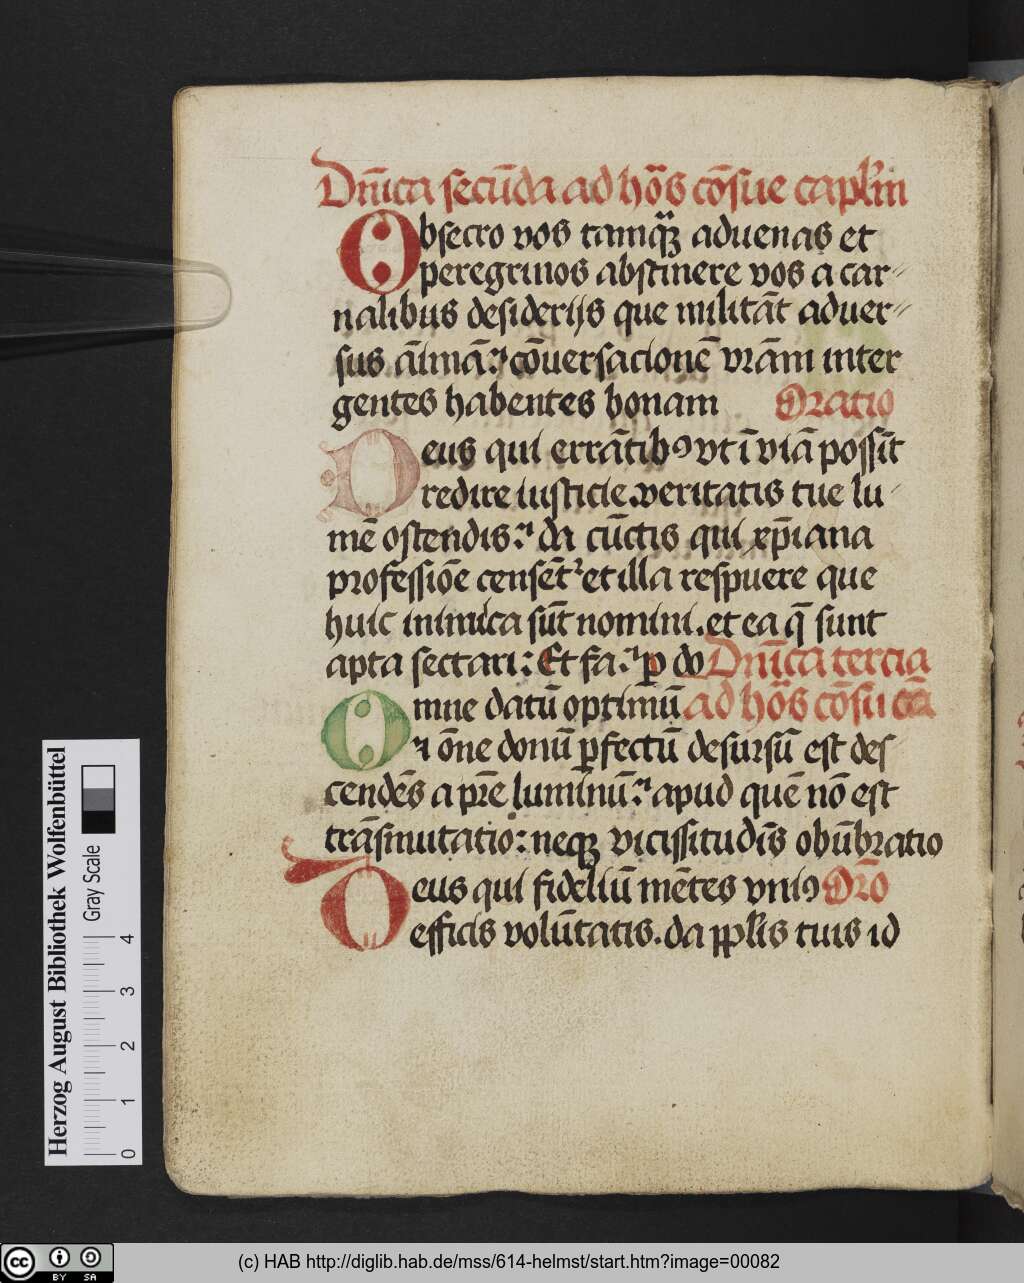 Dnĩca secūda ad hōs cōsue capl'm
Obsecro vos tamqꝫ aduenas et
peregrinos abstinere vos a car⸗
nalibus desiderijs que militāt aduer⸗
sus āīmā: cōuersacionē vrām inter
gentes habentes bonam Oratio
Deus qui errātibꝯ vt ī viā possīt
redire iusticie veritatis tue lu⸗
mē ostendis: da cūctis qui xp̄iana
professiōe censēt᷑ et illa respuere que
huic inimica sūt nomini. et ea q̄ sunt
apta sectari: Et fa: ꝑ do Dnīca tercia
Omne datū optimū ad hōs cōsu ca
⁊ ōne donū ꝑfectū desursū est des
cendēs a pr̄e luminū: apud quē nō est
trāsmutatio: neqꝫ vicissitudīs obūbratio
Deus qui fideliū mētes vniꝯ Oro
efficis volūtatis. da ppl'is tuis id
Herzog August Bibliothek Wolfenbüttel
Gray Scale
0 1 2 3 4
cc BY SA
(c) HAB http://diglib.hab.de/mss/614-helmst/start.htm?image=00082